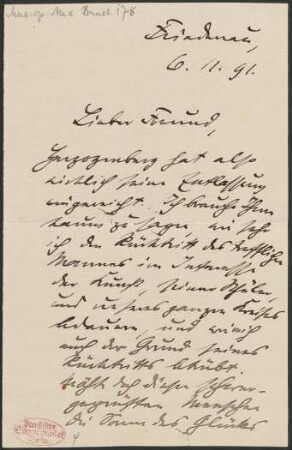 Mus. ep. Max Bruch 178
Friedenau,
6. 11. 91.
Lieber Freund,
Herzogenberg hat also
wirklich seine Entlassung
eingereicht. Ich brauche Ihnen
kaum zu sagen, wie sehr
ich den Rücktritt des trefflichen
Mannes im Interesse
der Kunst, seiner Schüler,
und unseres ganzen Kreises
bedauere, und wie mich
auch der Grund seines
Rücktritts betrübt.
doch diesen schwer-
geprüften Menschen
die Sonne des Glücks